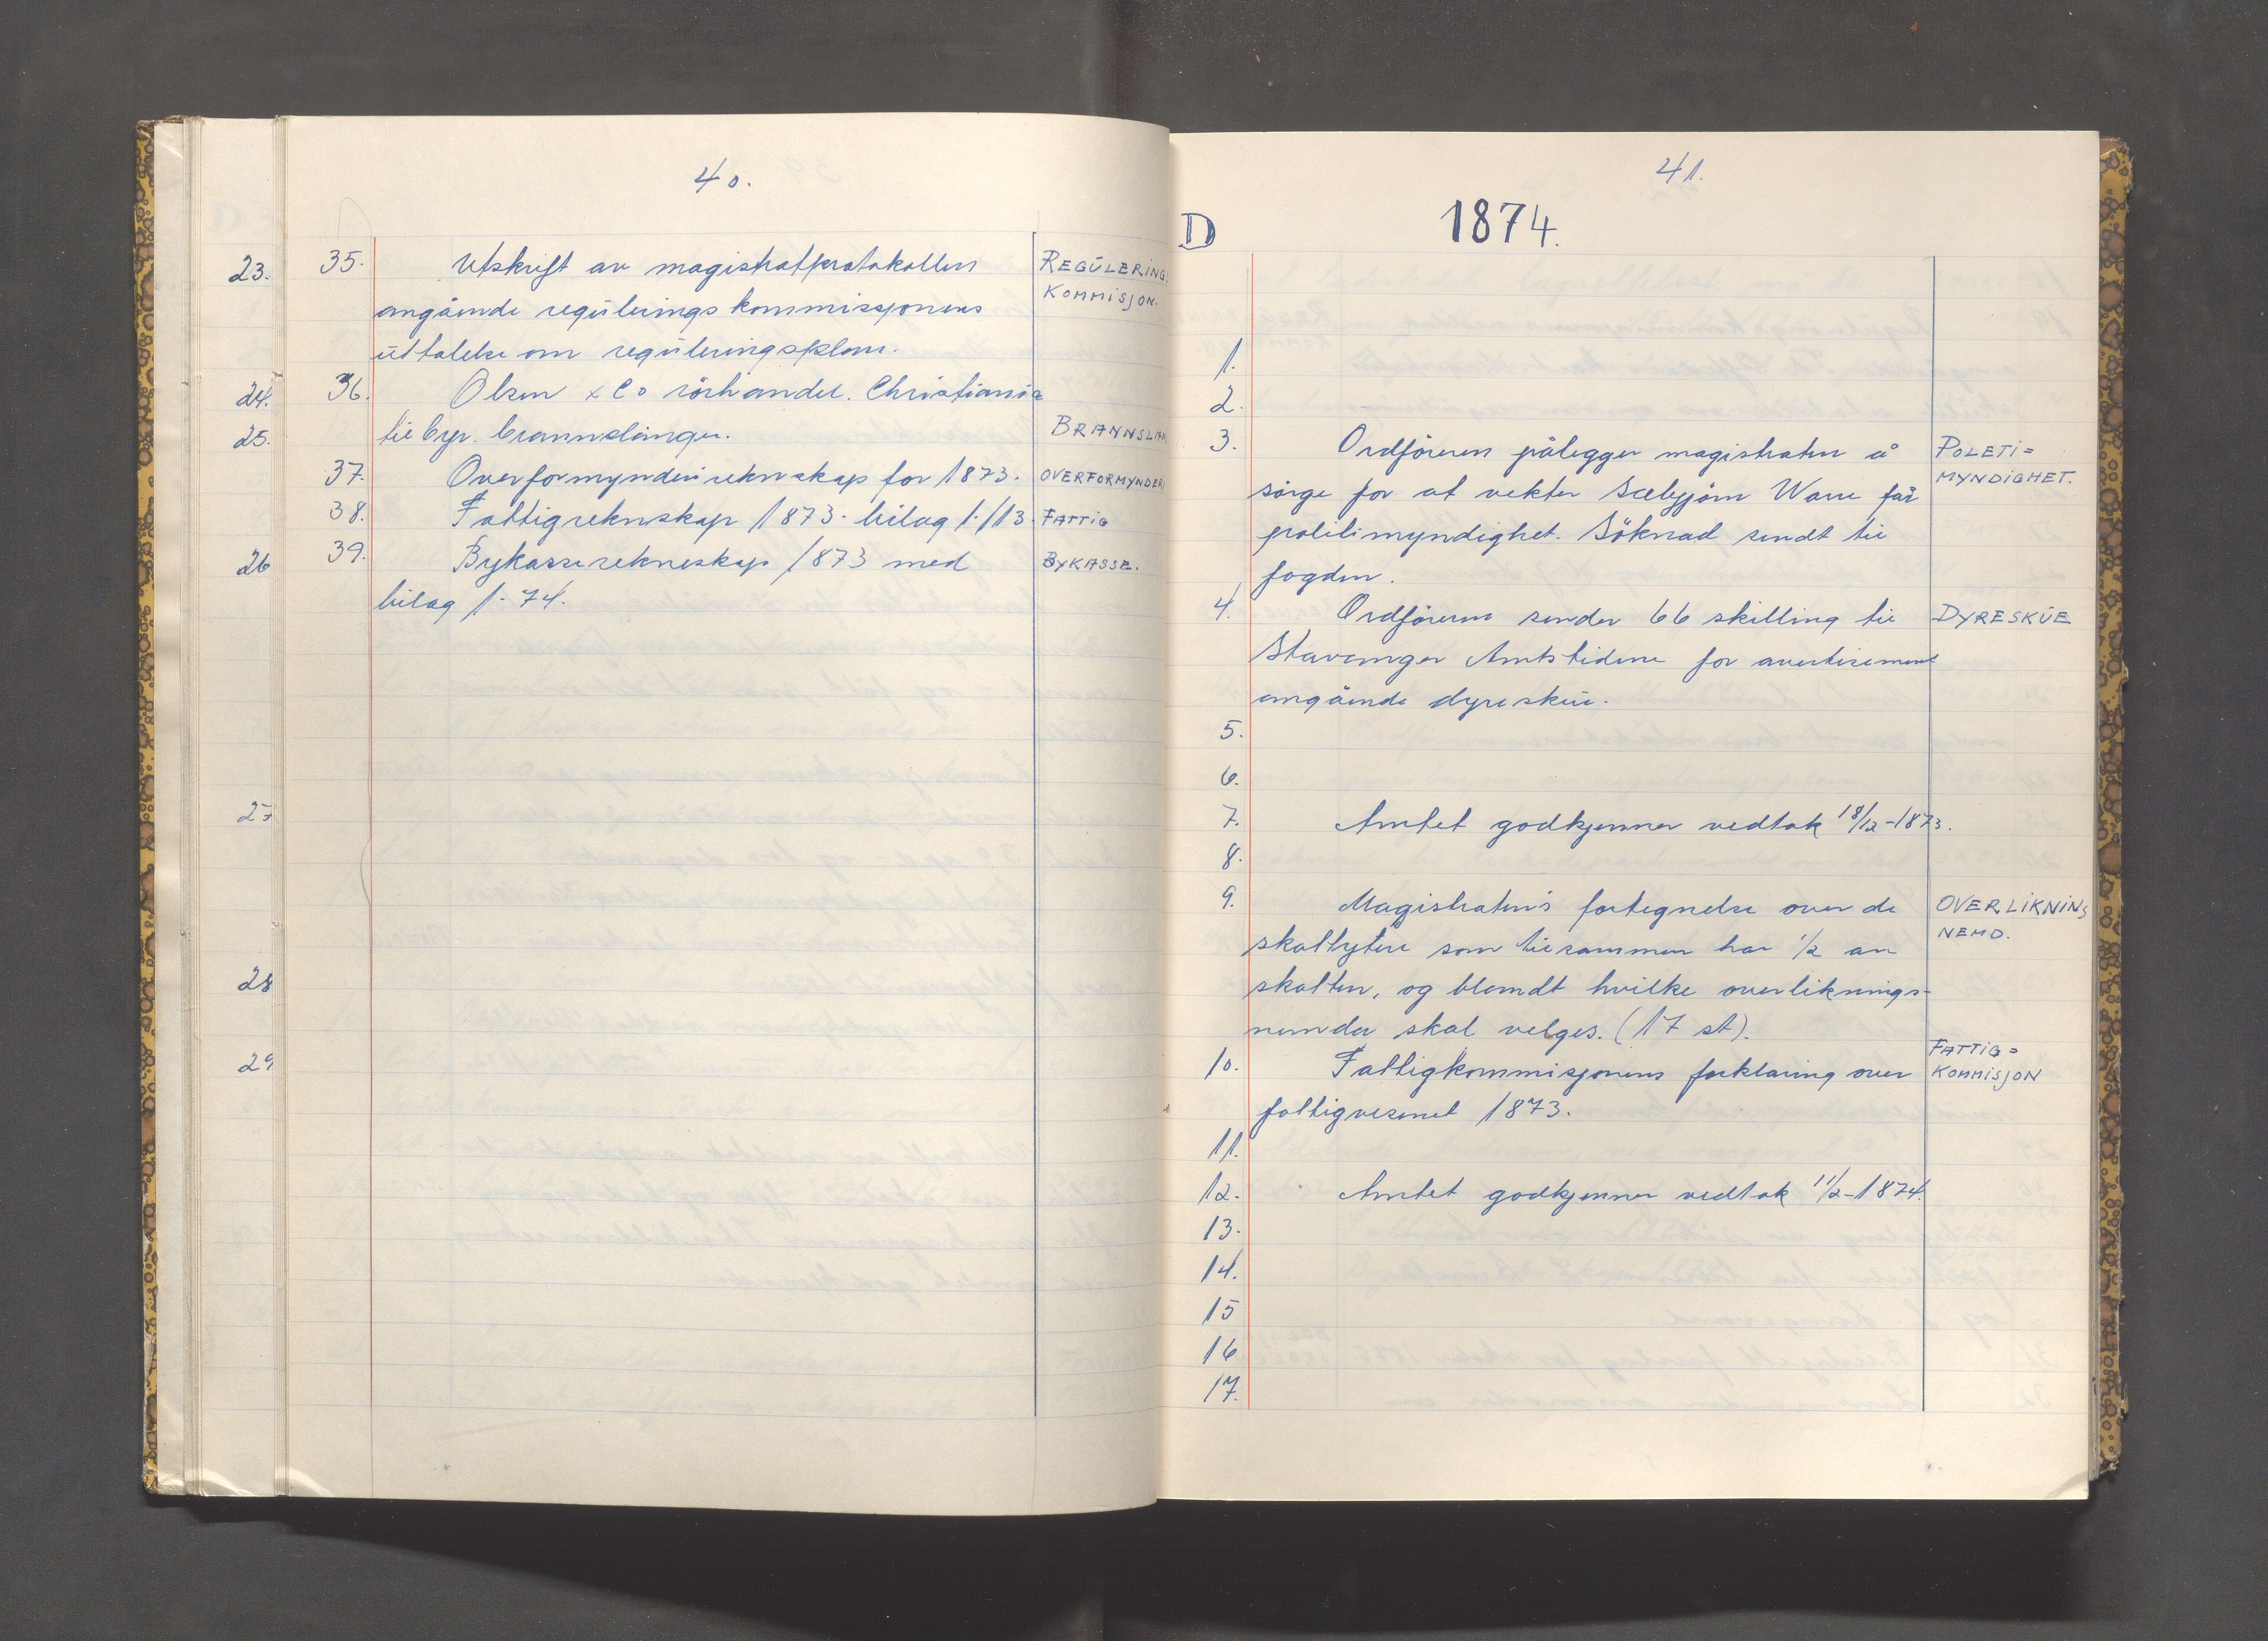 40.
23. 35. Utskrift av magistratprotokollen REGULERING.
angående regulerings kommissjonens KOMMISJON.
uttalelse om reguleringsplan.
24. 36. Olsen & Co rörhandel. Christiania
25. til byr. brannslanger. BRANNSLAN
37. Overformynderireknskap for 1873. OVERFORMYNDERI
38. Fattigreknskap 1873. bilag 1-113. FATTIG
26 39. Bykasserekneskap 1873 med BYKASSE.
bilag 1-74.
27
28
29
41.
D 1874.
1.
2.
3. Ordföreren pålegger magistraten å POLETI=
sörge for at vekter Sæbjörn Ware får MYNDIGHET.
politimyndighet. Söknad sendt til
fogden.
4. Ordföreren sender 66 skilling til DYRESKUE
Stavanger Amtstidene for avertisement
angående dyreskue.
5.
6.
7. Amtet godkjenner vedtak 18/12-1873.
8.
9. Magistraten's fortegnelse over de OVERLIKNINGS
skattytere som tilsammen har 1/2 av NEMD.
skatten, og blandt hvilke overliknings-
nemnda skal velges. (17 st).
10. Fattigkommisjonens forklaring over FATTIG=
fattigvesenet 1873. KOMMISJON
11.
12. Amtet godkjenner vedtak 11/2-1874.
13.
14.
15
16
17.